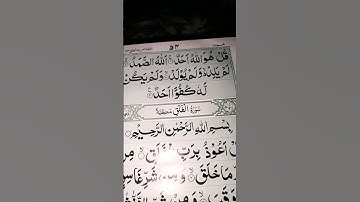 ۵۴
قُلْ هُوَ اللّٰهُ اَحَدٌ اَللّٰهُ الصَّمَدُ
لَمْ يَلِدْ وَلَمْ يُوْلَدْ وَلَمْ يَكُنْ
لَّهٗ كُفُوًا اَحَدٌ
سُوْرَةُ الْفَلَقِ
بِسْمِ اللّٰهِ الرَّحْمٰنِ الرَّحِيْمِ
اَعُوْذُ بِرَبِّ الْفَلَقِ مِنْ
مَا خَلَقَ وَمِنْ شَرِّ غَاسِ